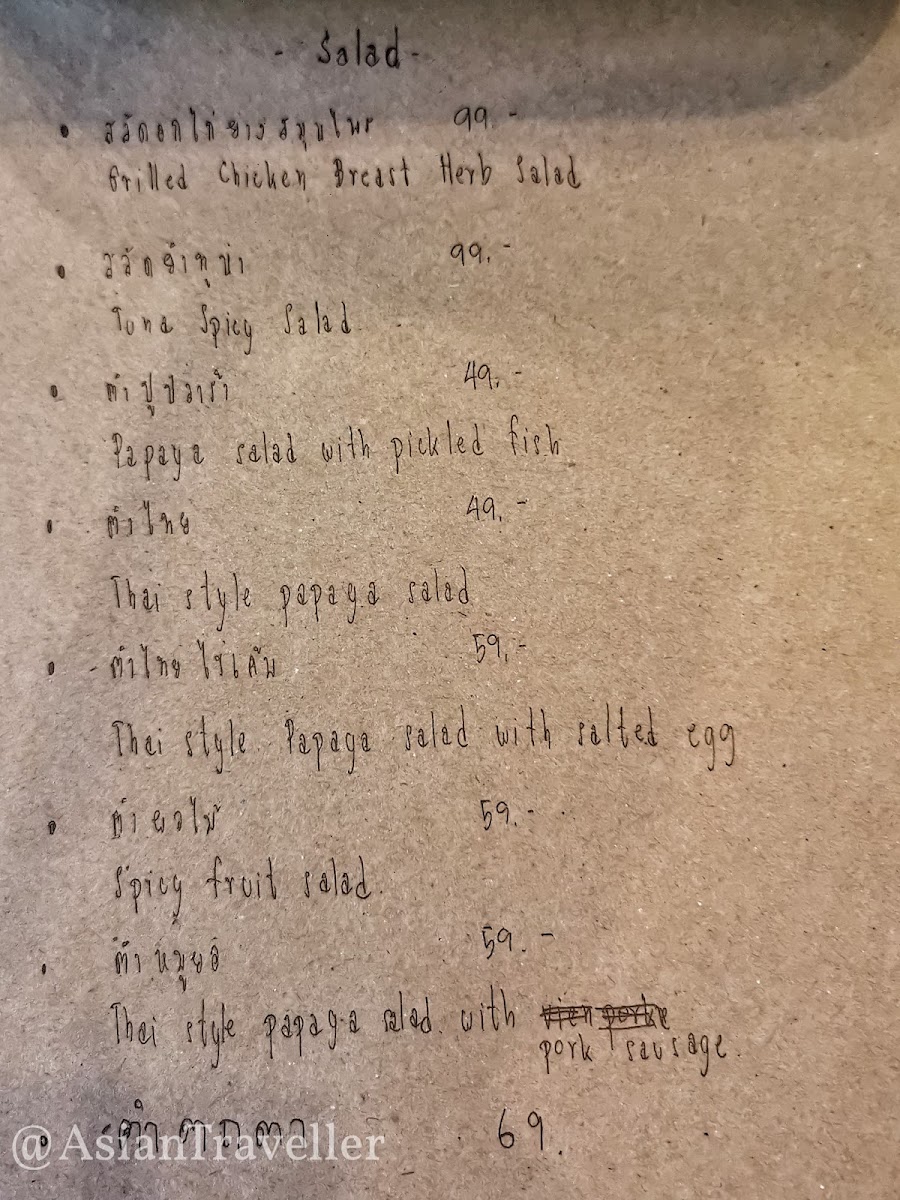 - Salad -
• สลัดอกไก่ย่างสมุนไพร 99.-
Grilled Chicken Breast Herb Salad
• สลัดยำทูน่า 99.-
Tuna Spicy Salad
• ตำปูปลาร้า 49.-
Papaya salad with pickled fish
• ตำไทย 49.-
Thai style papaya salad
• ตำไทยไข่เค็ม 59.-
Thai style Papaya salad with salted egg
• ตำผลไม้ 59.-
Spicy fruit salad.
• ตำหมูยอ 59.-
Thai style papaya salad with
pork sausage.
• ตำ 69.
@AsianTraveller